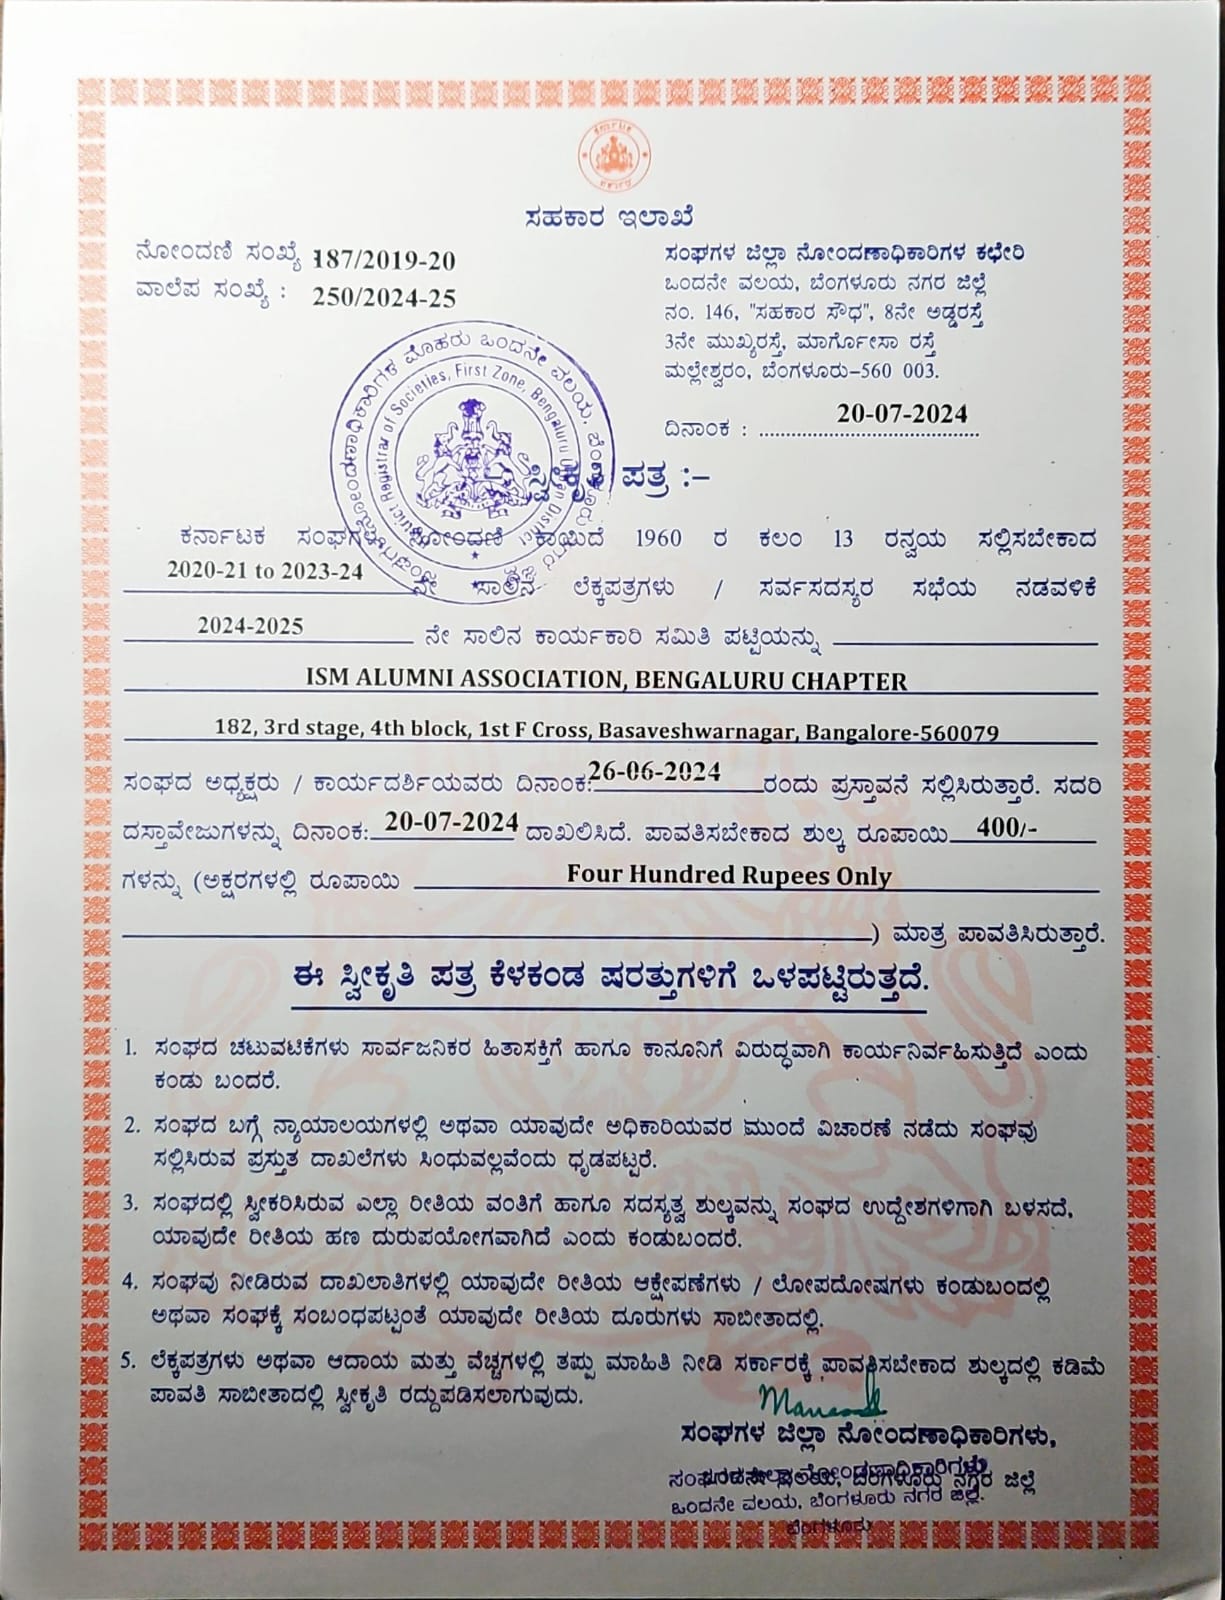 ಸಹಕಾರ ಇಲಾಖೆ
ನೋಂದಣಿ ಸಂಖ್ಯೆ 187/2019-20
ವಾಲೆಪ ಸಂಖ್ಯೆ : 250/2024-25
ಸಂಘಗಳ ಜಿಲ್ಲಾ ನೋಂದಣಾಧಿಕಾರಿಗಳ ಕಛೇರಿ
ಒಂದನೇ ವಲಯ, ಬೆಂಗಳೂರು ನಗರ ಜಿಲ್ಲೆ
ನಂ. 146, "ಸಹಕಾರ ಸೌಧ", 8ನೇ ಅಡ್ಡರಸ್ತೆ
3ನೇ ಮುಖ್ಯರಸ್ತೆ, ಮಾರ್ಗೋಸಾ ರಸ್ತೆ
ಮಲ್ಲೇಶ್ವರಂ, ಬೆಂಗಳೂರು-560 003.
ದಿನಾಂಕ : 20-07-2024
ಸ್ವೀಕೃತಿ ಪತ್ರ :-
ಕರ್ನಾಟಕ ಸಂಘಗಳ ನೋಂದಣಿ ಕಾಯಿದೆ 1960 ರ ಕಲಂ 13 ರನ್ವಯ ಸಲ್ಲಿಸಬೇಕಾದ
2020-21 to 2023-24 ನೇ ಸಾಲಿನ ಲೆಕ್ಕಪತ್ರಗಳು / ಸರ್ವಸದಸ್ಯರ ಸಭೆಯ ನಡವಳಿಕೆ
2024-2025 ನೇ ಸಾಲಿನ ಕಾರ್ಯಕಾರಿ ಸಮಿತಿ ಪಟ್ಟಿಯನ್ನು
ISM ALUMNI ASSOCIATION, BENGALURU CHAPTER
182, 3rd stage, 4th block, 1st F Cross, Basaveshwarnagar, Bangalore-560079
ಸಂಘದ ಅಧ್ಯಕ್ಷರು / ಕಾರ್ಯದರ್ಶಿಯವರು ದಿನಾಂಕ: 26-06-2024 ರಂದು ಪ್ರಸ್ತಾವನೆ ಸಲ್ಲಿಸಿರುತ್ತಾರೆ. ಸದರಿ
ದಸ್ತಾವೇಜುಗಳನ್ನು ದಿನಾಂಕ: 20-07-2024 ದಾಖಲಿಸಿದೆ. ಪಾವತಿಸಬೇಕಾದ ಶುಲ್ಕ ರೂಪಾಯಿ 400/-
ಗಳನ್ನು (ಅಕ್ಷರಗಳಲ್ಲಿ ರೂಪಾಯಿ Four Hundred Rupees Only
) ಮಾತ್ರ ಪಾವತಿಸಿರುತ್ತಾರೆ.
ಈ ಸ್ವೀಕೃತಿ ಪತ್ರ ಕೆಳಕಂಡ ಷರತ್ತುಗಳಿಗೆ ಒಳಪಟ್ಟಿರುತ್ತದೆ.
1. ಸಂಘದ ಚಟುವಟಿಕೆಗಳು ಸಾರ್ವಜನಿಕರ ಹಿತಾಸಕ್ತಿಗೆ ಹಾಗೂ ಕಾನೂನಿಗೆ ವಿರುದ್ಧವಾಗಿ ಕಾರ್ಯನಿರ್ವಹಿಸುತ್ತಿದೆ ಎಂದು
ಕಂಡು ಬಂದರೆ.
2. ಸಂಘದ ಬಗ್ಗೆ ನ್ಯಾಯಾಲಯಗಳಲ್ಲಿ ಅಥವಾ ಯಾವುದೇ ಅಧಿಕಾರಿಯವರ ಮುಂದೆ ವಿಚಾರಣೆ ನಡೆದು ಸಂಘವು
ಸಲ್ಲಿಸಿರುವ ಪ್ರಸ್ತುತ ದಾಖಲೆಗಳು ಸಿಂಧುವಲ್ಲವೆಂದು ಧೃಡಪಟ್ಟರೆ.
3. ಸಂಘದಲ್ಲಿ ಸ್ವೀಕರಿಸಿರುವ ಎಲ್ಲಾ ರೀತಿಯ ವಂತಿಗೆ ಹಾಗೂ ಸದಸ್ಯತ್ವ ಶುಲ್ಕವನ್ನು ಸಂಘದ ಉದ್ದೇಶಗಳಿಗಾಗಿ ಬಳಸದೆ,
ಯಾವುದೇ ರೀತಿಯ ಹಣ ದುರುಪಯೋಗವಾಗಿದೆ ಎಂದು ಕಂಡುಬಂದರೆ.
4. ಸಂಘವು ನೀಡಿರುವ ದಾಖಲಾತಿಗಳಲ್ಲಿ ಯಾವುದೇ ರೀತಿಯ ಆಕ್ಷೇಪಣೆಗಳು / ಲೋಪದೋಷಗಳು ಕಂಡುಬಂದಲ್ಲಿ
ಅಥವಾ ಸಂಘಕ್ಕೆ ಸಂಬಂಧಪಟ್ಟಂತೆ ಯಾವುದೇ ರೀತಿಯ ದೂರುಗಳು ಸಾಬೀತಾದಲ್ಲಿ.
5. ಲೆಕ್ಕಪತ್ರಗಳು ಅಥವಾ ಆದಾಯ ಮತ್ತು ವೆಚ್ಚಗಳಲ್ಲಿ ತಪ್ಪು ಮಾಹಿತಿ ನೀಡಿ ಸರ್ಕಾರಕ್ಕೆ ಪಾವತಿಸಬೇಕಾದ ಶುಲ್ಕದಲ್ಲಿ ಕಡಿಮೆ
ಪಾವತಿ ಸಾಬೀತಾದಲ್ಲಿ ಸ್ವೀಕೃತಿ ರದ್ದುಪಡಿಸಲಾಗುವುದು.
ಸಂಘಗಳ ಜಿಲ್ಲಾ ನೋಂದಣಾಧಿಕಾರಿಗಳು,
ಬೆಂಗಳೂರು ನಗರ ಜಿಲ್ಲೆ
ಒಂದನೇ ವಲಯ, ಬೆಂಗಳೂರು ನಗರ ಜಿಲ್ಲೆ.
ಬೆಂಗಳೂರು